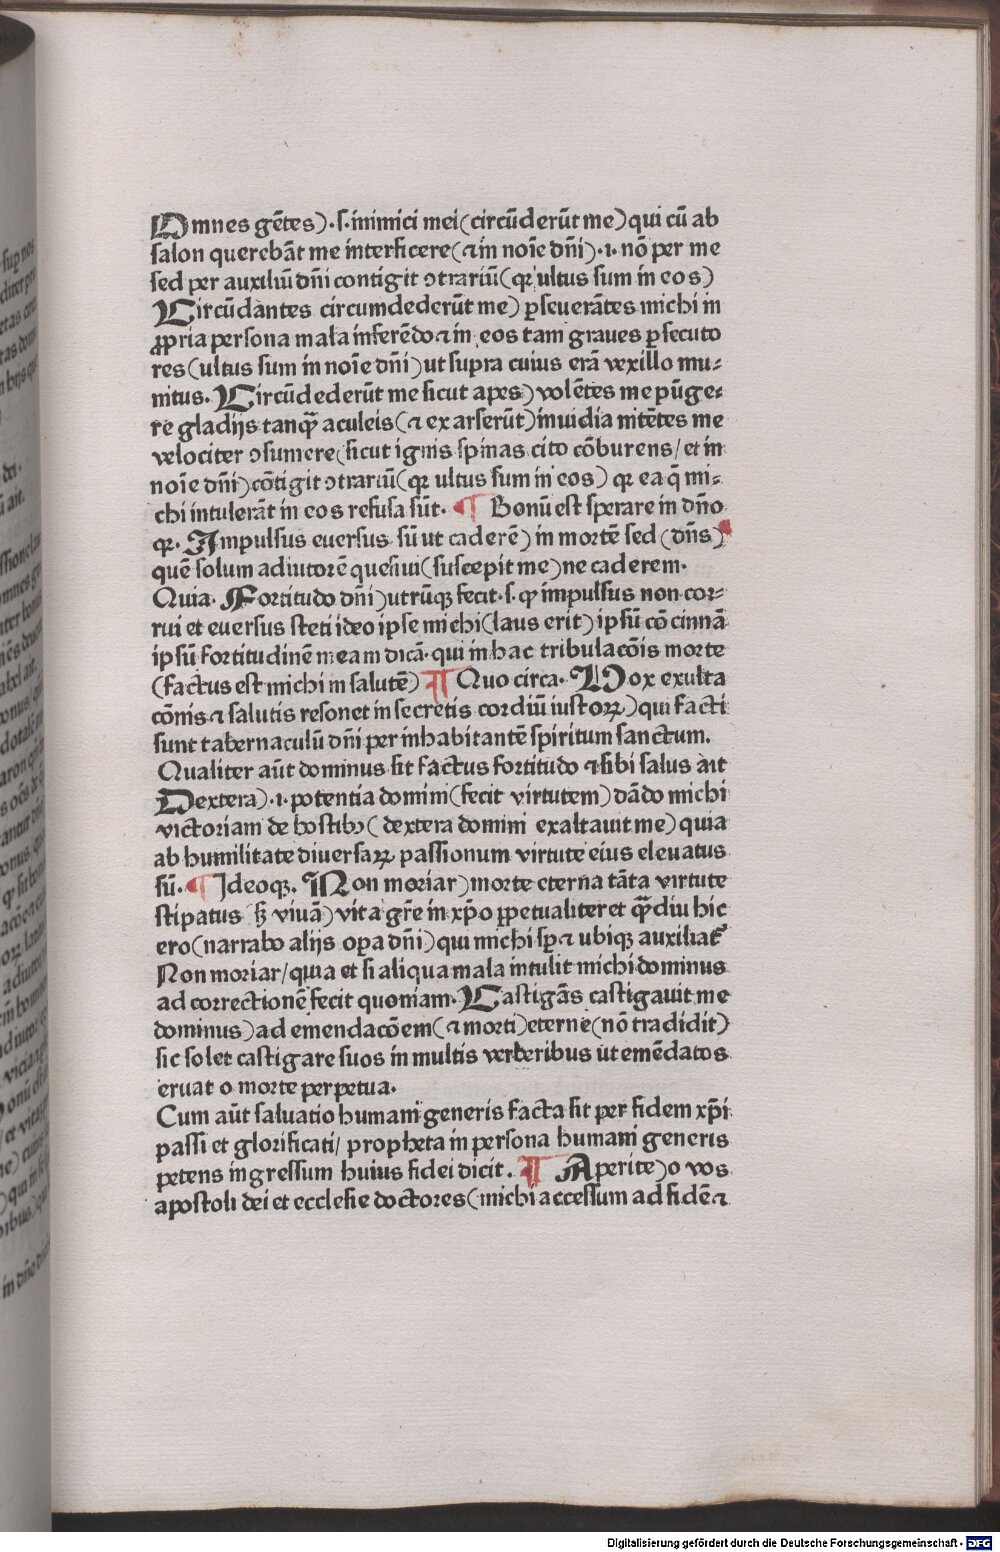 Omnes gẽtes).s.inimici mei(circũderũt me)qui cũ ab
salon querebãt me interficere(⁊in noĩe dñi).i.nõ per me
sed per auxiliũ dñi contigit ↄtrariũ(qꝛ ultus sum in eos)
Circũdantes circumdederũt me) ꝑseuerãtes michi in
ꝓpria persona mala inferẽdo⁊in eos tam graues ꝑsecuto
res(ultus sum in noĩe dñi)ut supra cuius erã vexillo mu⸗
nitus. Circũdederũt me sicut apes)volẽtes me pũge⸗
re gladijs tanꝙ̃ aculeis(⁊ exarserũt)inuidia nitẽtes me
velociter ↄsumere(sicut ignis spinas cito cõburens/et in
noĩe dñi)cõtigit ↄtrariũ(qꝛ ultus sum in eos) qꝛ ea q̃ mi⸗
chi intulerãt in eos refusa sũt. ¶ Bonũ est sperare in dño
qꝛ. Impulsus euersus sũ ut caderẽ)in mortẽ sed (dñs)
quẽ solum adiutorẽ quesiui(suscepit me)ne caderem.
Quia. Fortitudo dñi)utrũqꝫ fecit.s.ꝙ impulsus non cor⸗
rui et euersus steti ideo ipse michi(laus erit)ipsũ cõcinnã
ipsũ fortitudinẽ meam dicã.qui in hac tribulacõis morte
(factus est michi in salutẽ) ¶ Quo circa. Vox exulta
cõnis⁊ salutis resonet in secretis cordiũ iustoꝝ)qui facti
sunt tabernaculũ dñi per inhabitantẽ spiritum sanctum.
Qualiter aũt dominus sit factus fortitudo ⁊ sibi salus ait
Dextera).i.potentia domini(fecit virtutem)dãdo michi
victoriam de hostibꝰ(dextera domini exaltauit me)quia
ab humilitate diuersaꝝ passionum virtute eius eleuatus
sũ. ¶ Ideoqꝫ. Non moriar)morte eterna tãta virtute
stipatus (sꝫ viuã)vita gr̃e in xp̃o ꝑpetualiter et ꝙ̃diu hic
ero(narrabo alijs oꝑa dñi)qui michi sꝑ⁊ ubiqꝫ auxiliat᷑
Non moriar/quia et si aliqua mala intulit michi dominus
ad correctionẽ fecit quoniam. Castigãs castigauit me
dominus)ad emendacõem(⁊ morti)eterne(nõ tradidit)
sic solet castigare suos in multis verberibus ut emẽdatos
eruat o morte perpetua.
Cum aũt saluatio humani generis facta sit per fidem xp̃i
passi et glorificati/ propheta in persona humani generis
petens ingressum huius fidei dicit. ¶ Aperite)o vos
apostoli dei et ecclesie doctores(michi accessum ad fidẽ⁊
Digitalisierung gefördert durch die Deutsche Forschungsgemeinschaft - DFG